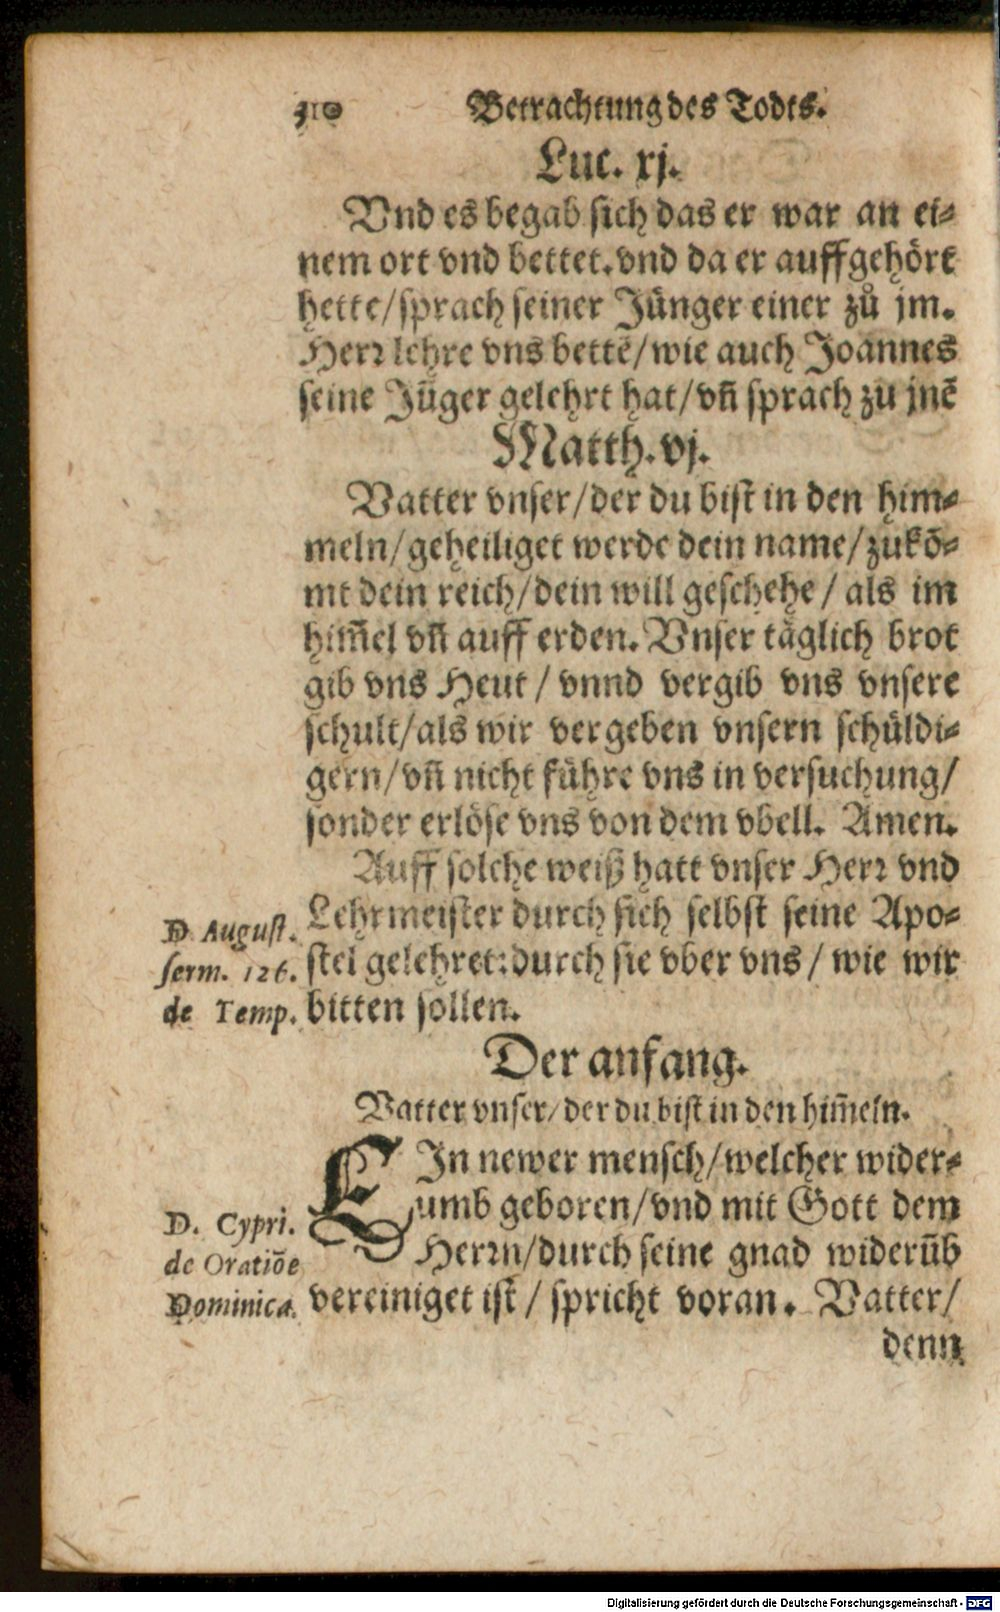 310 Betrachtung des Todts.
Luc. xj.
Vnd es begab sich das er war an ei-
nem ort vnd bettet. vnd da er auffgehört
hette/sprach seiner Jünger einer zů jm.
Herr lehre vns bettē/wie auch Joannes
seine Jüger gelehrt hat/vñ sprach zu jnē
Matth. vj.
Vatter vnser/der du bist in den him-
meln/geheiliget werde dein name/zukō-
mt dein reich/dein will geschehe/ als im
him̄el vñ auff erden. Vnser täglich brot
gib vns Heut / vnnd vergib vns vnsere
schult/als wir vergeben vnsern schüldi-
gern/vñ nicht führe vns in versuchung/
sonder erlöse vns von dem vbell. Amen.
Auff solche weiß hatt vnser Herr vnd
Lehrmeister durch sich selbst seine Apo-
stel gelehret: durch sie vber vns / wie wir
bitten sollen.
D. August.
serm. 126.
de Temp.
Der anfang.
Vatter vnser/der du bist in den him̄eln.
EIn newer mensch/welcher wider-
umb geboren/vnd mit Gott dem
Herrn/durch seine gnad widerūb
vereiniget ist / spricht voran. Vatter/
D. Cypri.
de Oratiōe
Dominica.
denn
Digitalisierung gefördert durch die Deutsche Forschungsgemeinschaft - DFG